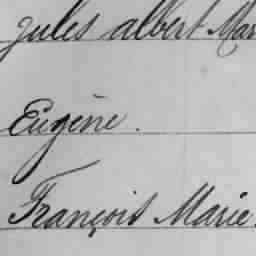 Jules Albert Mar
Eugène.
François Marie.